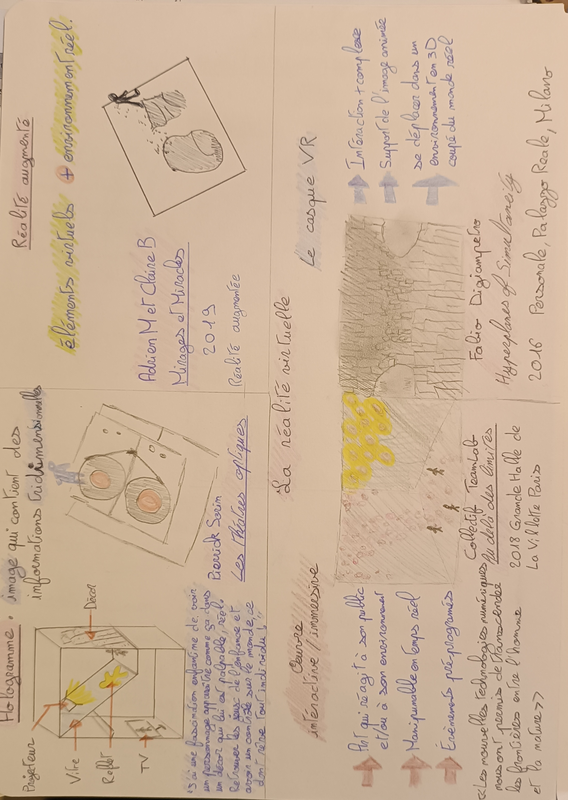 Hologramme : image qui contient des
informations tridimensionnelles
Projecteur
Vitre
Reflet
TV
Décor
Pierrick Sorin
Les théâtres optiques
"J'ai une fascination enfantine de voir
un personnage apparaître comme ça dans
un décor qui lui est palpable, réel.
Retrouver les yeux de l'enfance et
avoir un contrôle sur le monde, ce
dont rêve tout individu"
Réalité augmenté
éléments virtuels + environnement réel.
Adrien M et Claire B
Mirages et Miracles
2019
Réalité augmentée
La réalité virtuelle
Œuvre
intéractive / immersive
Art qui réagit à son public
et/ou à son environnement
Manipulable en temps réel
Evènements pré-programés
Collectif TeamLab
Au delà des limites
2018 Grande Halle de
La Villette Paris
<<Les nouvelles technologies numériques
nous ont permis de transcender
les frontières entre l'homme
et la nature>>
Le casque VR
Intéraction + complexe
Support de l'image animée
Se déplacer dans un
environnement en 3D
coupé du monde réel
Fabio Digiampetro
Hyperplanes of Simultaneity
2016 Personale, Palazzo Reale, Milano